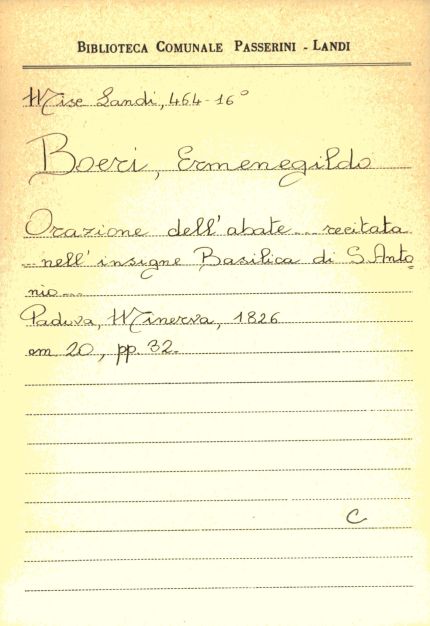 BIBLIOTECA COMUNALE PASSERINI - LANDI
Misc Landi, 464-16°
Boeri, Ermenegildo
Orazione dell'abate... recitata
...nell'insigne Basilica di S. Anto
nio....
Padova, Minerva, 1826
cm 20, pp. 32.
C